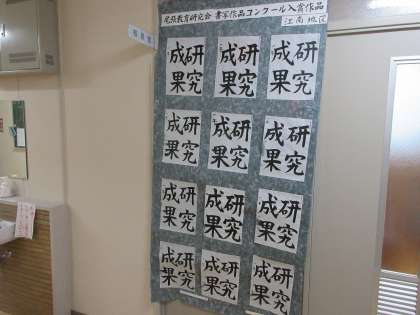 尾張教育研究会 書写作品コンクール入賞作品
江南地区
研究
成果
研究
成果
研究
成果
研究
成果
研究
成果
研究
成果
研究
成果
研究
成果
研究
成果
研究
成果
研究
成果
研究
成果